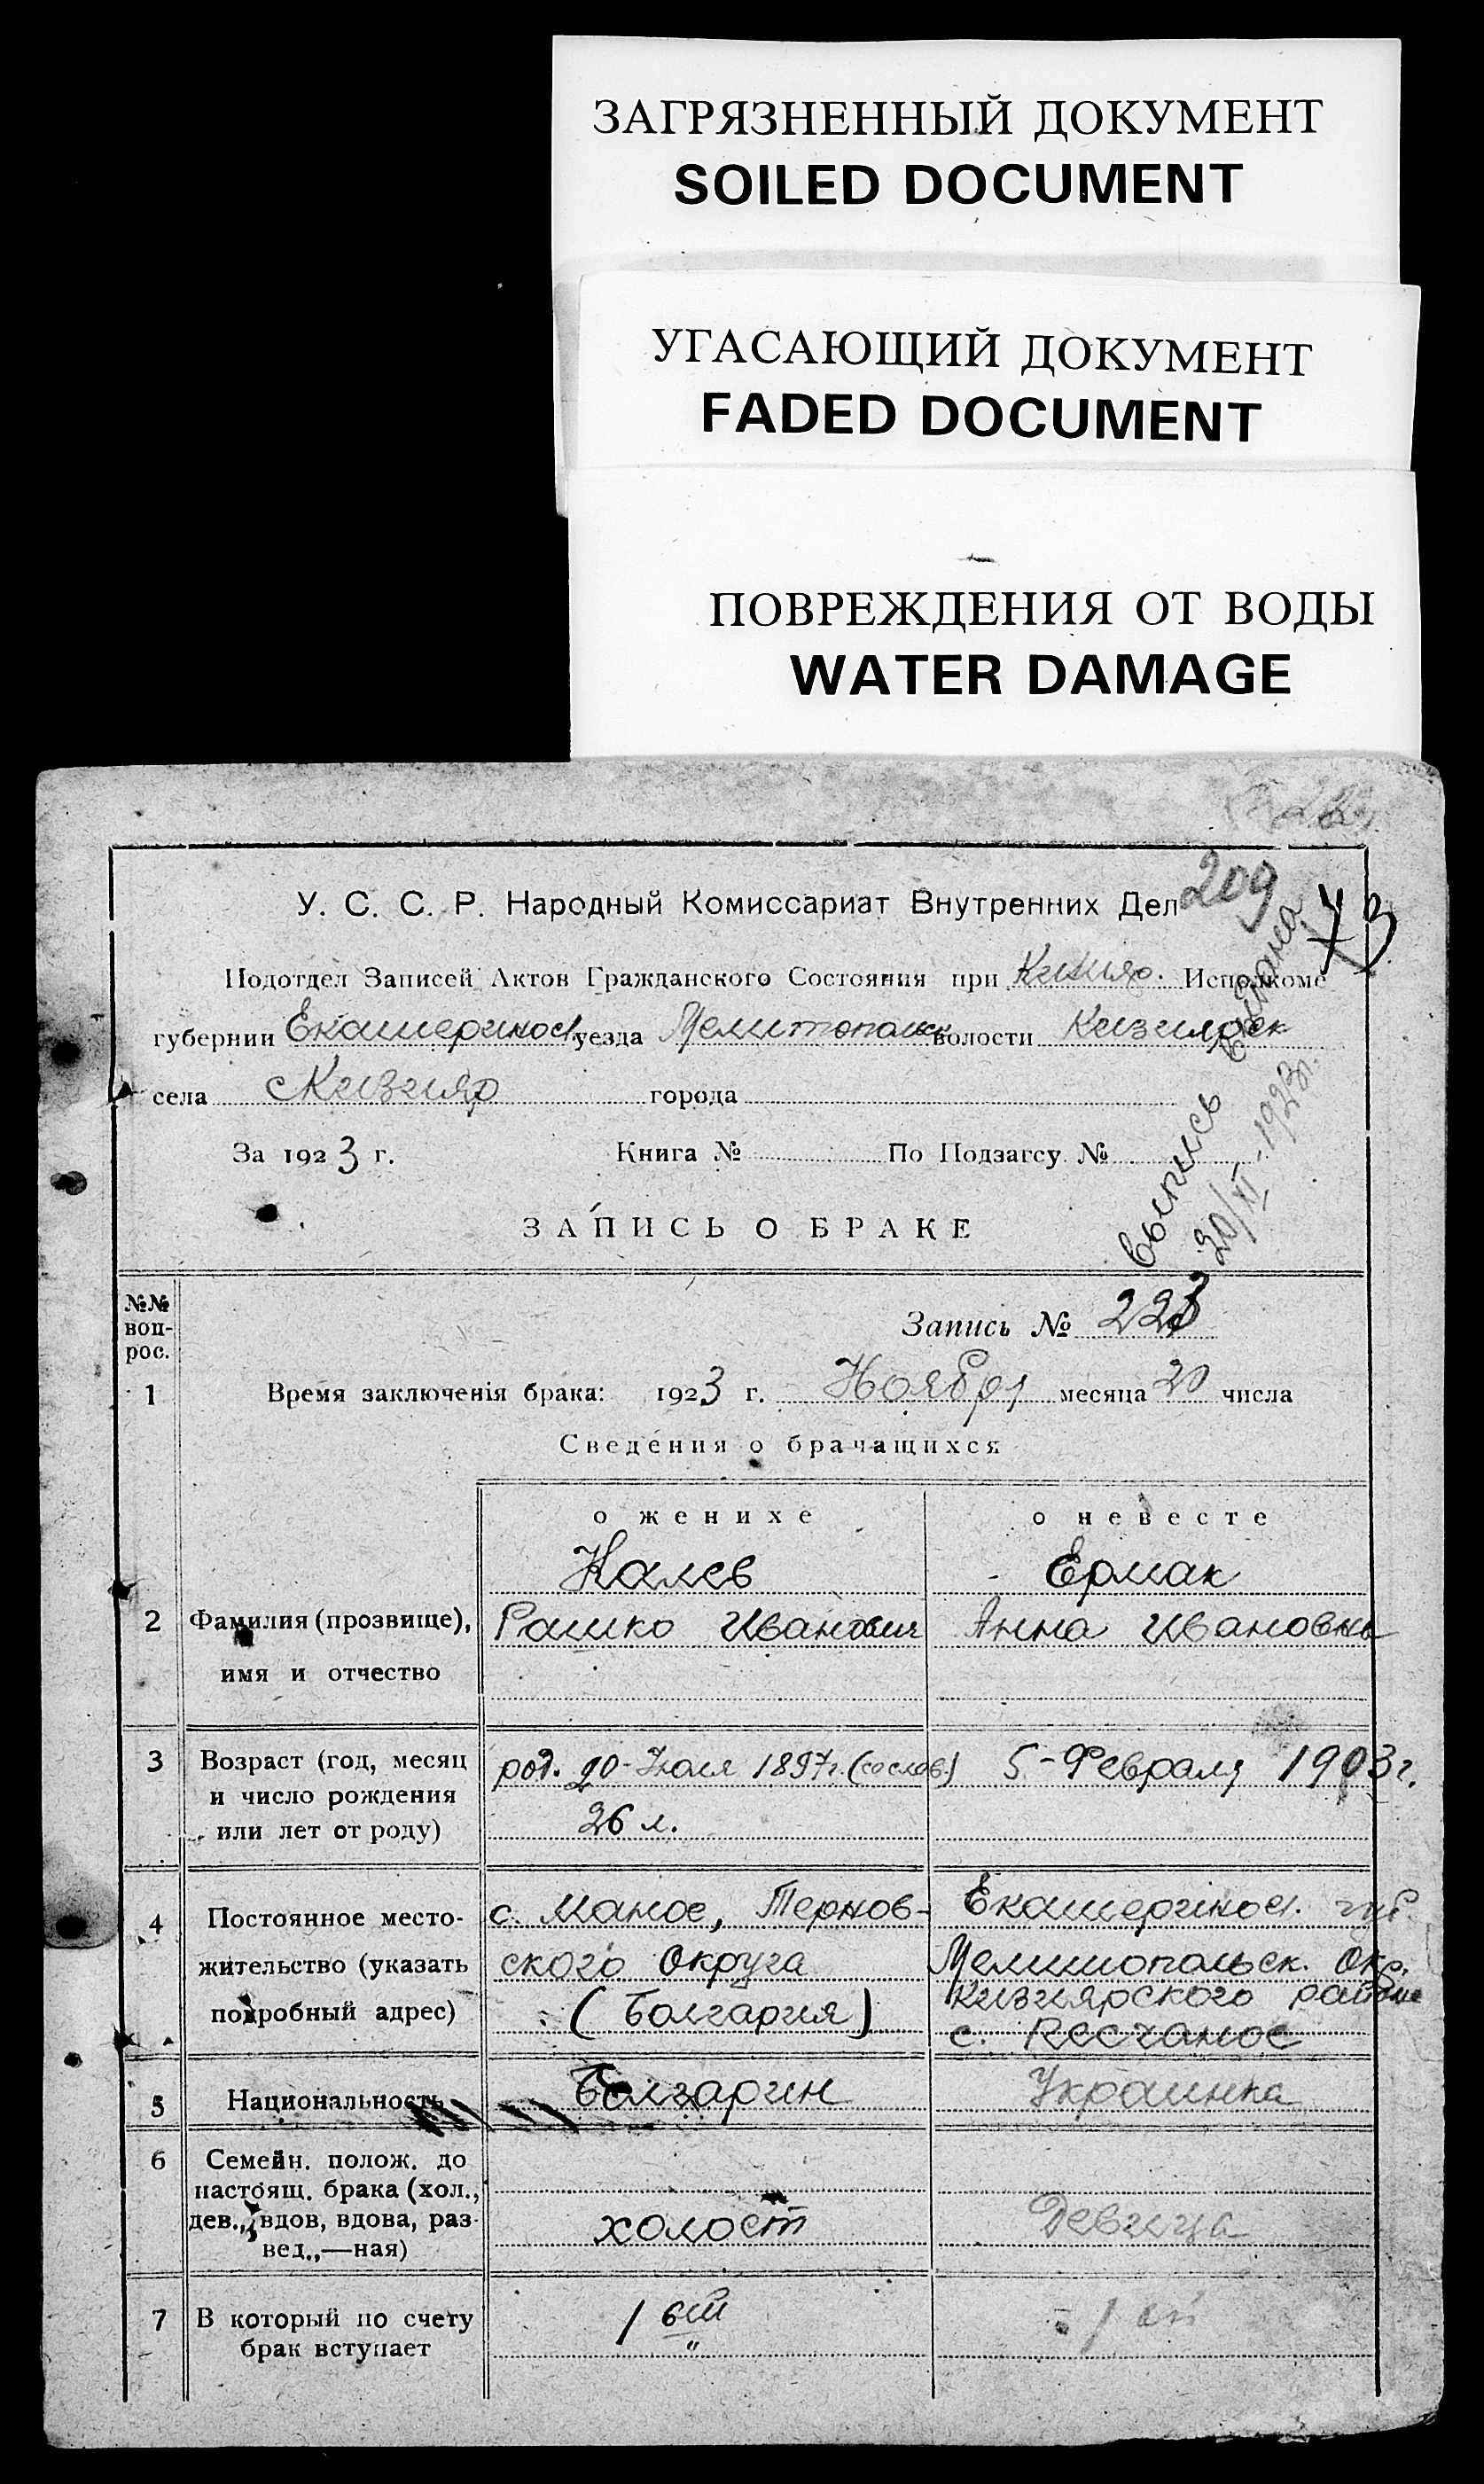 ЗАГРЯЗНЕННЫЙ ДОКУМЕНТ
SOILED DOCUMENT
УГАСАЮЩИЙ ДОКУМЕНТ
FADED DOCUMENT
ПОВРЕЖДЕНИЯ ОТ ВОДЫ
WATER DAMAGE
209
73
У. С. С. Р. Народный Комиссариат Внутренних Дел
Подотдел Записей Актов Гражданского Состояния при Кизияр. Исполкоме
губернии Екатеринос. уезда Мелитопольск волости Кизиярск
села Кизияр города
За 1923 г. Книга № По Подзагсу №
выпись выдана
20/XI-1923г.
ЗАПИСЬ О БРАКЕ
№№ воп-рос.
Запись № 223
1 Время заключенія брака: 1923 г. Ноября месяца 20 числа
Сведения о брачащихся
о женихе о невесте
Калев Ермак
2 Фамилия (прозвище), Рашко Иванович Анна Ивановна
имя и отчество
3 Возраст (год, месяц род. 20-Июля 1897г. (со слов) 5-Февраля 1903г.
и число рождения
или лет от роду) 26 л.
4 Постоянное место- с. Маное, Тернов- Екатеринос. губ.
жительство (указать ского Округа Мелитопольск. Окр.
подробный адрес) (Болгария) Кизиярского района
с. Песчаное
5 Национальность Болгарин Украинка
6 Семейн. полож. до
настоящ. брака (хол.,
дев., вдов, вдова, раз- холост Девица
вед.,—ная)
7 В который по счету 1 ый 1 ый
брак вступает "